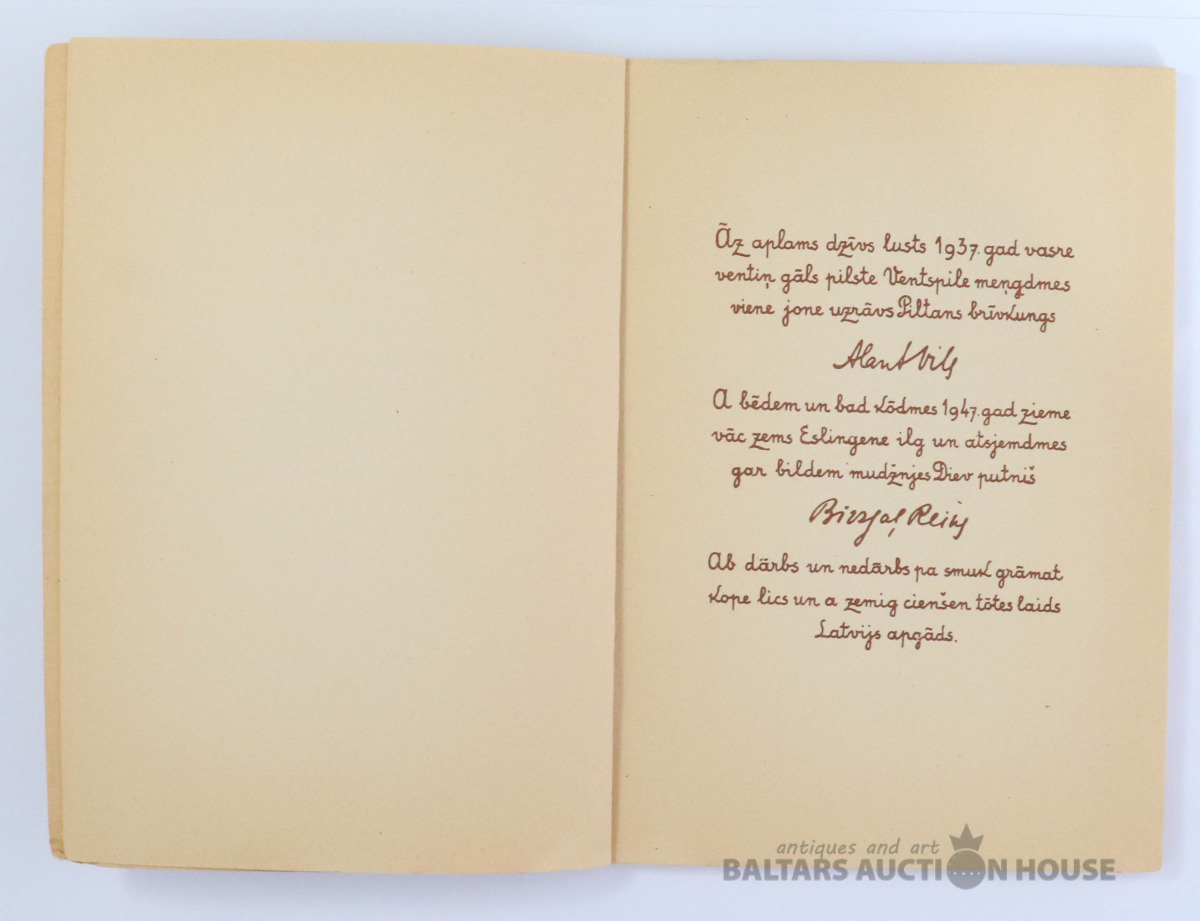 Āz aplams dzīvs lusts 1937. gad vasre
ventiņ gāls pilste Ventspile meņgdmes
viene jone uzrāvs Piltans brīvkungs
A bēdem un bad kōdmes 1947. gad zieme
vāc zems Eslingene ilg un atsjemdmes
gar bildem mudžnjes Diev putniš
Ab dārbs un nedārbs pa smuk grāmat
kope lics un a zemig cienšen tōtes laids
Latvijs apgāds.
antiques and art
BALTARS AUCTION HOUSE